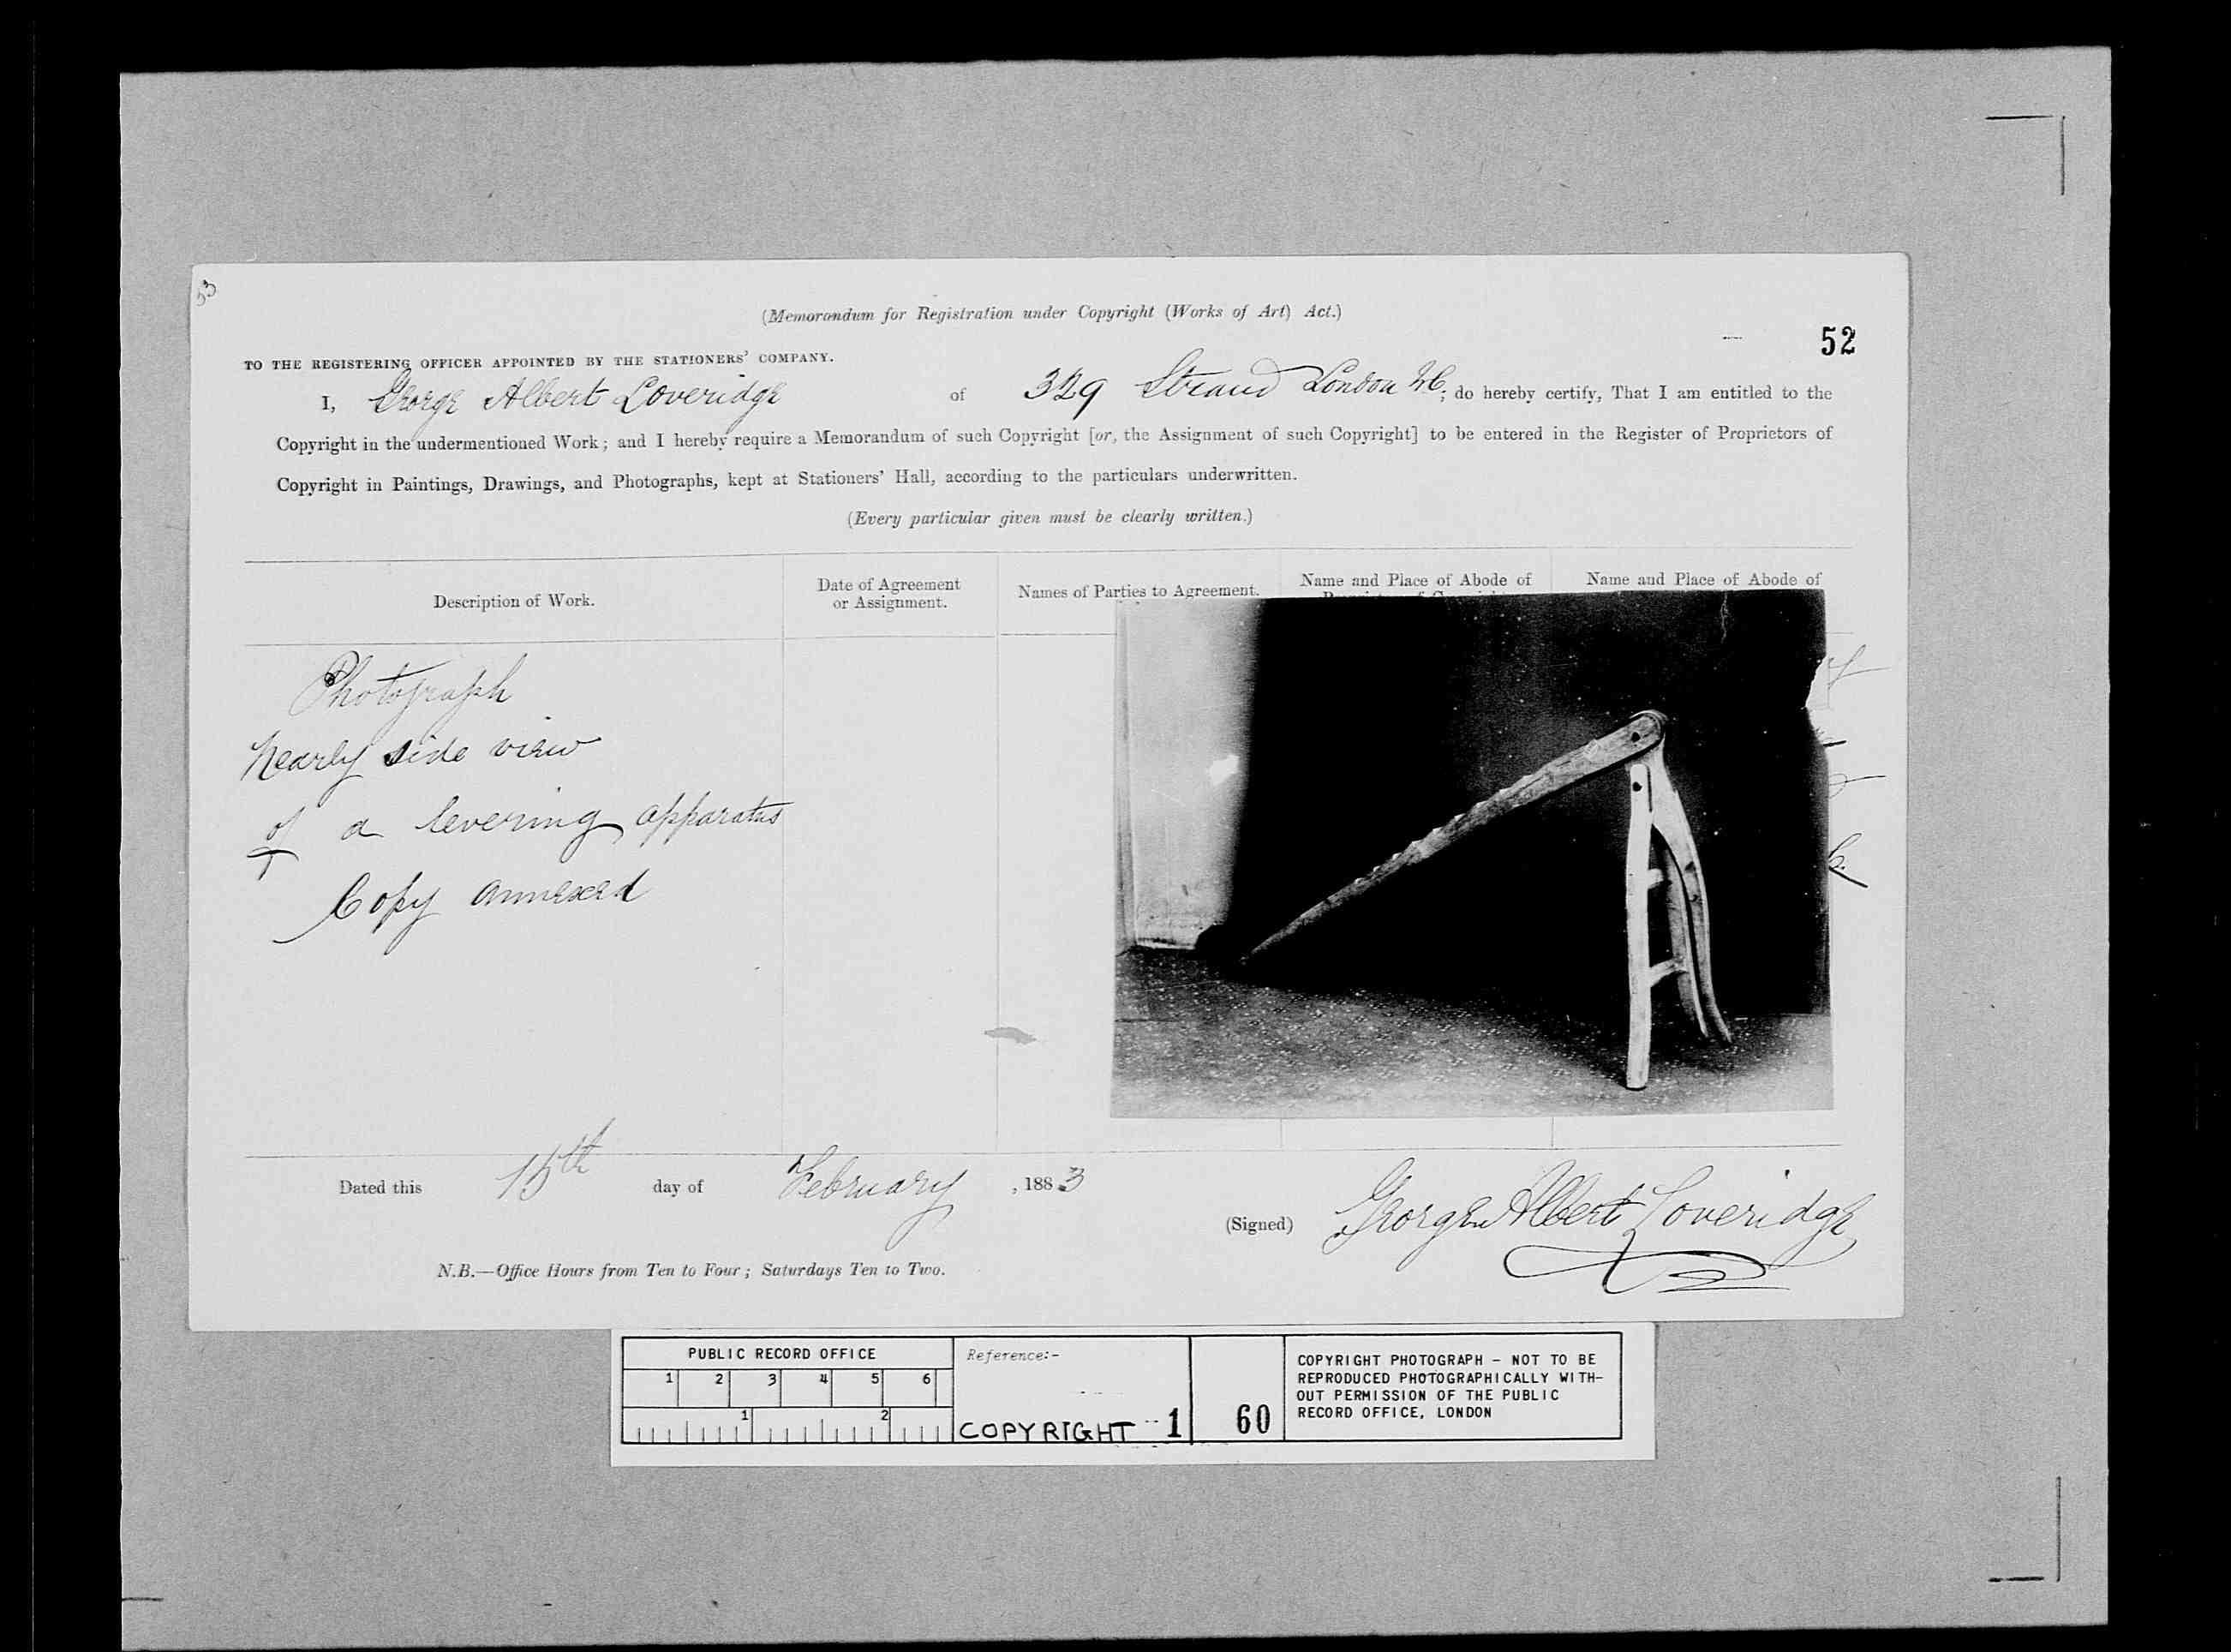 53
(Memorandum for Registration under Copyright (Works of Art) Act.)
52
TO THE REGISTERING OFFICER APPOINTED BY THE STATIONERS' COMPANY.
I, George Albert Loveridge of 329 Strand London WC; do hereby certify, That I am entitled to the
Copyright in the undermentioned Work; and I hereby require a Memorandum of such Copyright [or, the Assignment of such Copyright] to be entered in the Register of Proprietors of
Copyright in Paintings, Drawings, and Photographs, kept at Stationers' Hall, according to the particulars underwritten.
(Every particular given must be clearly written.)
Description of Work.
Date of Agreement
or Assignment.
Names of Parties to Agreement.
Name and Place of Abode of
Name and Place of Abode of
Photograph
Nearly side view
of a levering apparatus
Copy annexed
Dated this 15th day of February, 1883
(Signed) George Albert Loveridge
N.B.—Office Hours from Ten to Four; Saturdays Ten to Two.
PUBLIC RECORD OFFICE
1 2 3 4 5 6
1 2
Reference:-
COPYRIGHT 1
60
COPYRIGHT PHOTOGRAPH - NOT TO BE
REPRODUCED PHOTOGRAPHICALLY WITH-
OUT PERMISSION OF THE PUBLIC
RECORD OFFICE, LONDON